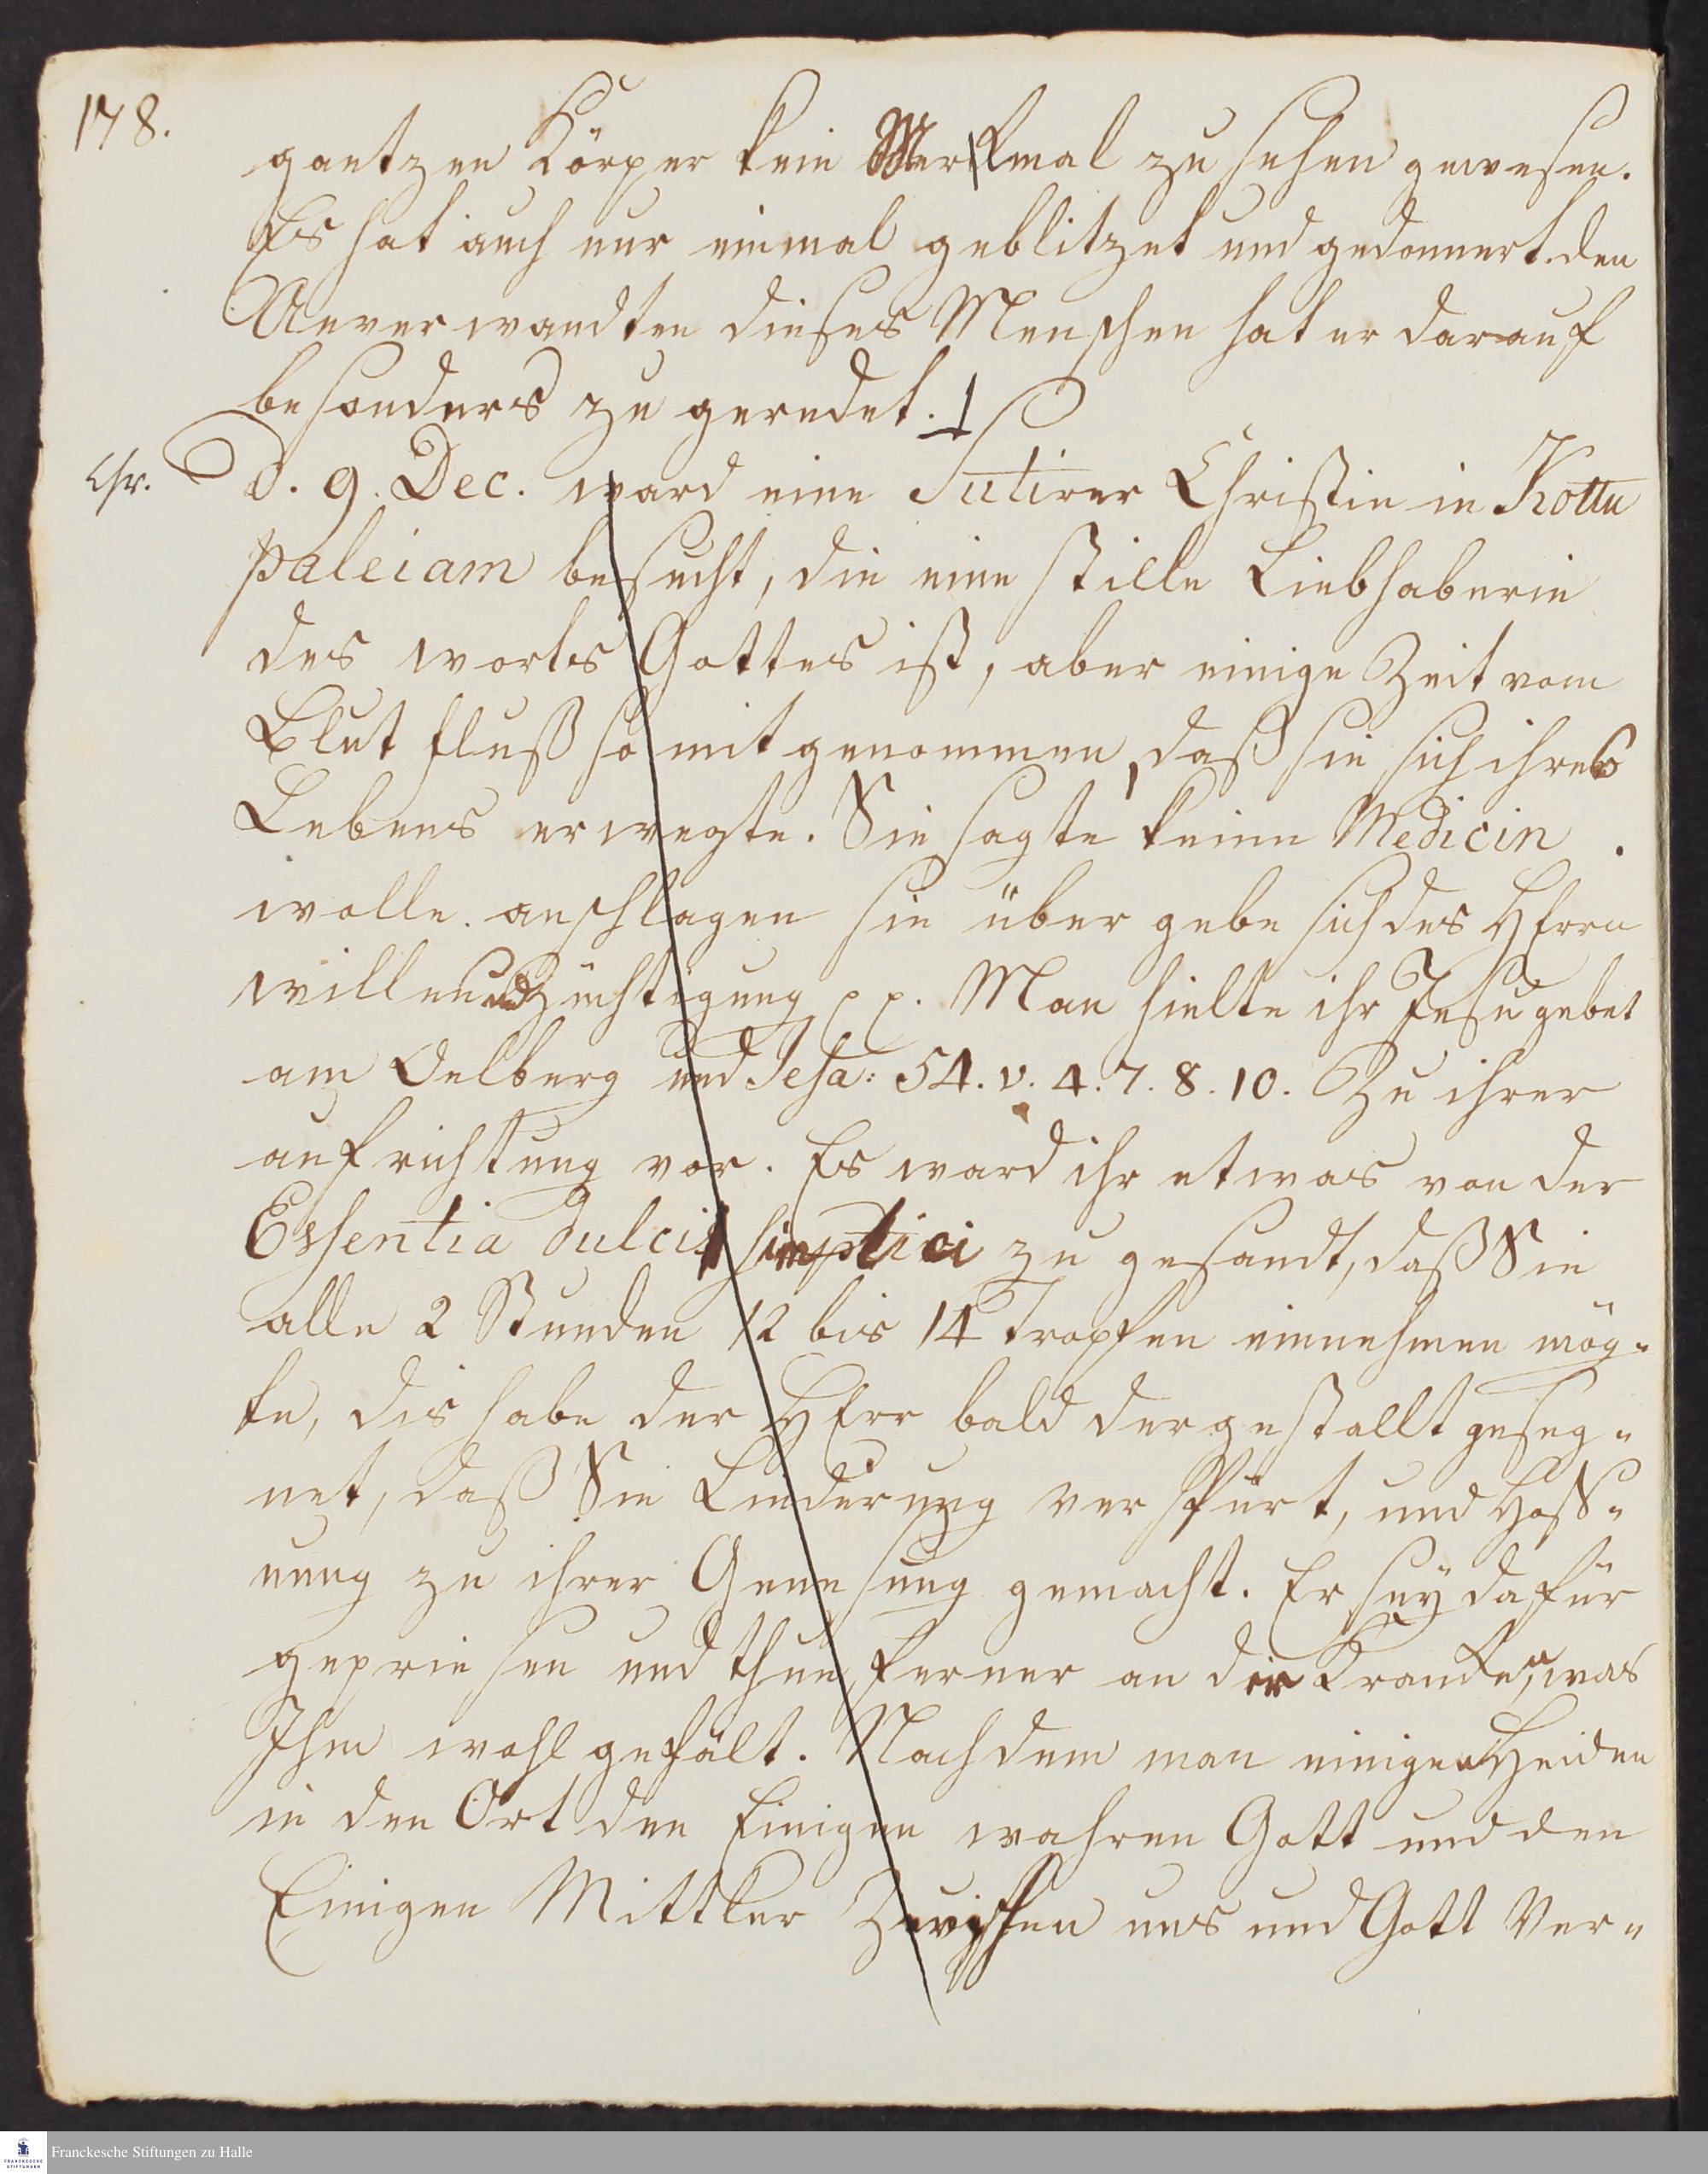 178.
gantzen Körper kein Merkmal zu sehen gewesen.
Es hat auch nur einmal geblitzet und gedonnert. den
Anverwandten dieses Menschen hat er darauf
besonders zu geredet.
Chr. d. 9. Dec. ward eine Sutirer Christin in Kottu
paleiam besucht, die eine stille Liebhaberin
des worts Gottes ist, aber einige Zeit vom
Blut fluß so mit genommen, daß sie sich ihres
Lebens erwegte. Sie sagte keine Medicin
wolle anschlagen sie über gebe sich des HErrn
willen und Züchtigung p p. Man hielte ihr Jesu gebet
am Oelberg und Jesa: 54. v. 4. 7. 8. 10. Zu ihrer
aufrichtung vor. Es ward ihr etwas von der
Essentia dulcis simplici zu gesandt, daß Sie
alle 2 Stunden 12 bis 14 Tropfen einnehmen mög-
te, dis habe der HErr bald dergestallt geseg-
net, daß Sie Linderung verspürt, und Hoff-
nung zu ihrer Genesung gemacht. Er sey dafür
gepriesen und thue ferner an der Kranken, was
Ihm wohl gefält. Nachdem man einigen Heiden
in den Ort den Einigen wahren Gott und den
Einigen Mittler Zwischen uns und Gott Ver-
Franckesche Stiftungen zu Halle
FRANCKESCHE
STIFTUNGEN